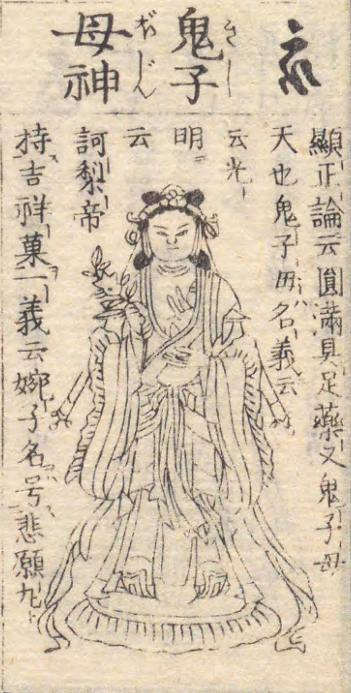 鬼子
きし
母神
ぼじん
顯正論云圓滿具足藥叉鬼子母
天也鬼子母名義云
云光
明
云
訶梨帝
持吉祥菓一義云婉子名号悲願九